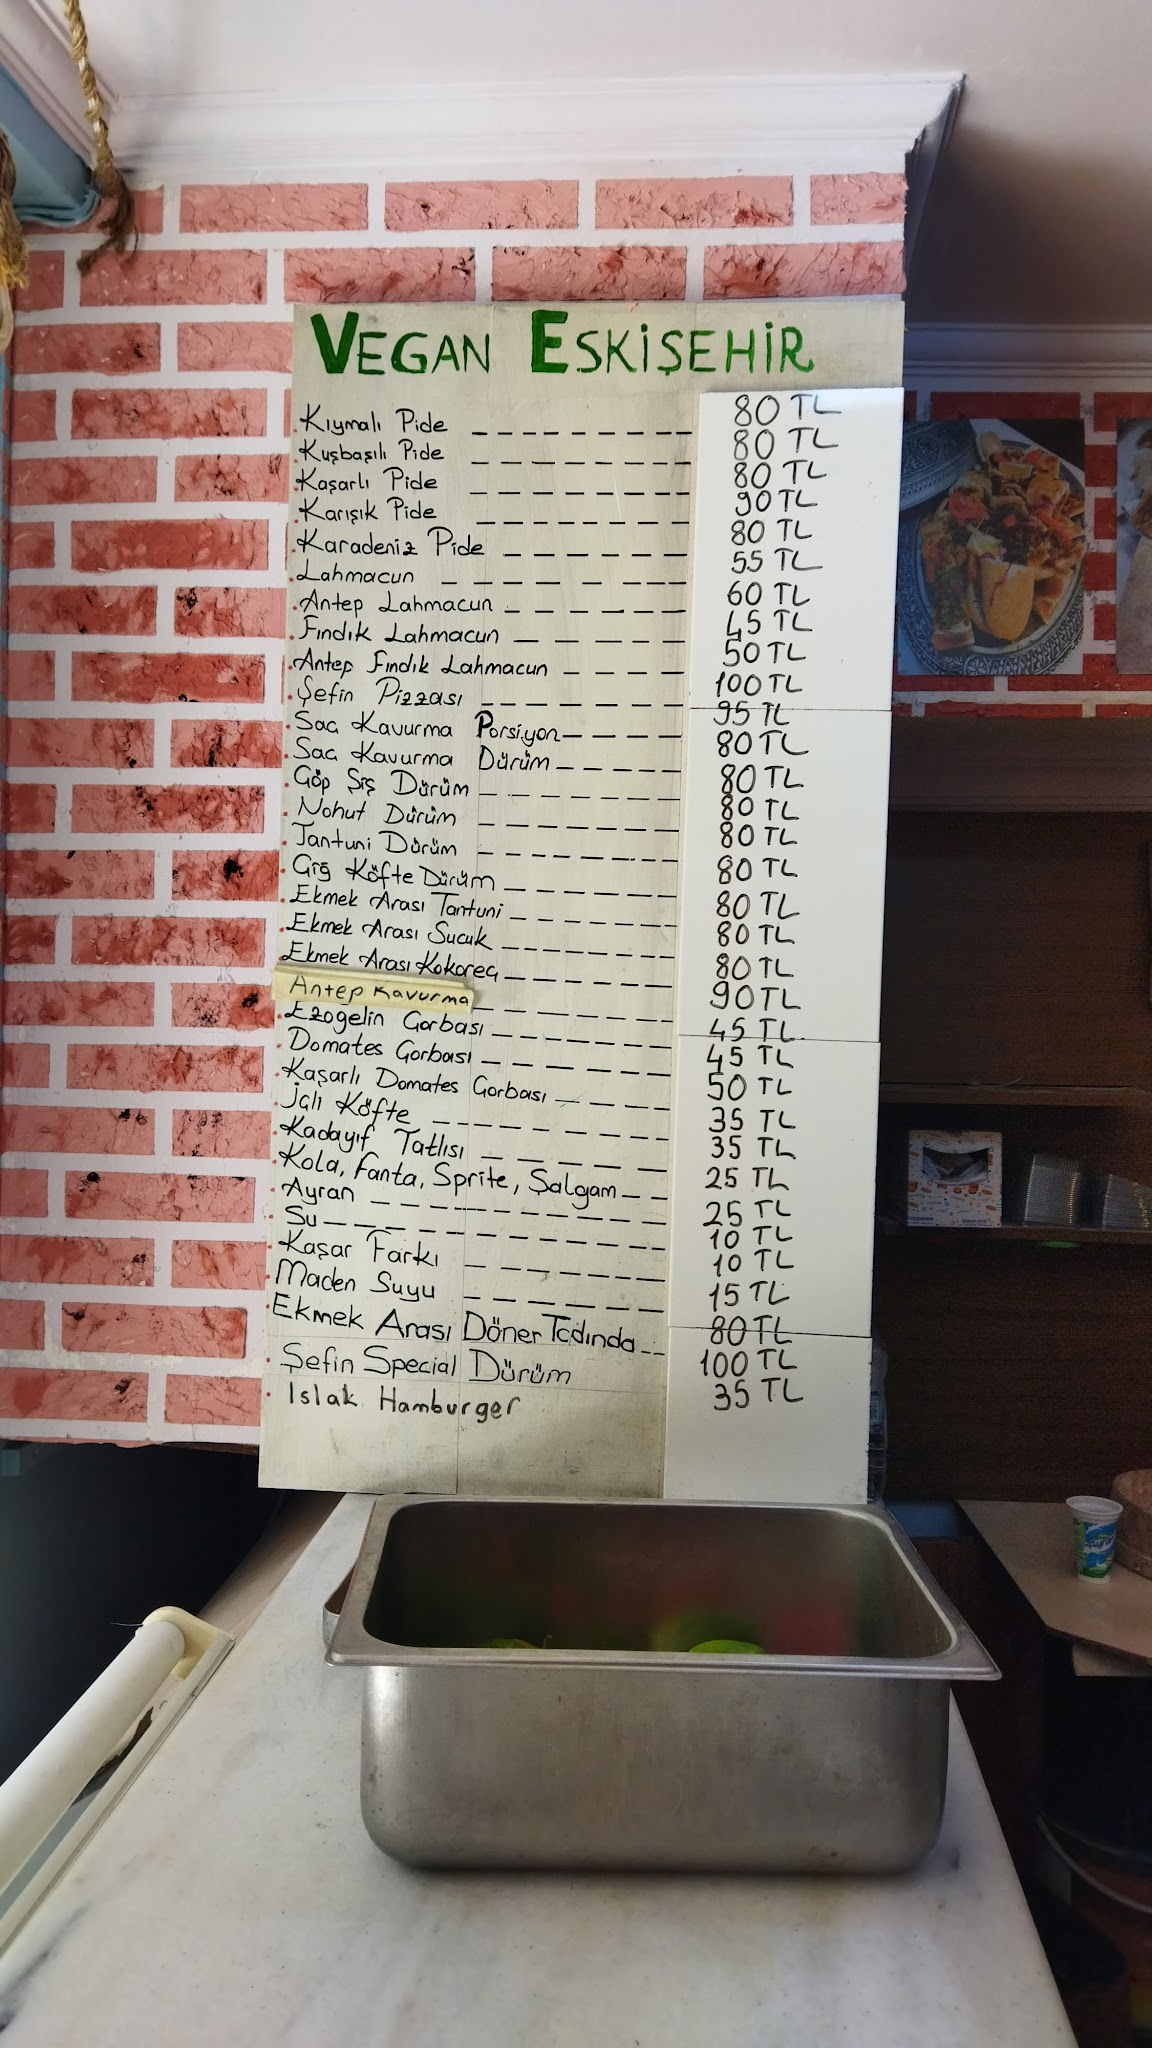 VEGAN ESKİŞEHİR
Kıymalı Pide 80 TL
Kuşbaşılı Pide 80 TL
Kaşarlı Pide 80 TL
Karışık Pide 90 TL
Karadeniz Pide 80 TL
Lahmacun 55 TL
Antep Lahmacun 60 TL
Fındık Lahmacun 45 TL
Antep Fındık Lahmacun 50 TL
Şefin Pizzası 100 TL
Sac Kavurma Porsiyon 95 TL
Sac Kavurma Dürüm 80 TL
Çöp Şiş Dürüm 80 TL
Nohut Dürüm 80 TL
Tantuni Dürüm 80 TL
Çiğ Köfte Dürüm 80 TL
Ekmek Arası Tantuni 80 TL
Ekmek Arası Sucuk 80 TL
Ekmek Arası Kokoreç 80 TL
Antep Kavurma 90 TL
Ezogelin Çorbası 45 TL
Domates Çorbası 45 TL
Kaşarlı Domates Çorbası 50 TL
İçli Köfte 35 TL
Kadayıf Tatlısı 35 TL
Kola, Fanta, Sprite, Şalgam 25 TL
Ayran 25 TL
Su 10 TL
Kaşar Farkı 10 TL
Maden Suyu 15 TL
Ekmek Arası Döner Tadında 80 TL
Şefin Special Dürüm 100 TL
Islak Hamburger 35 TL